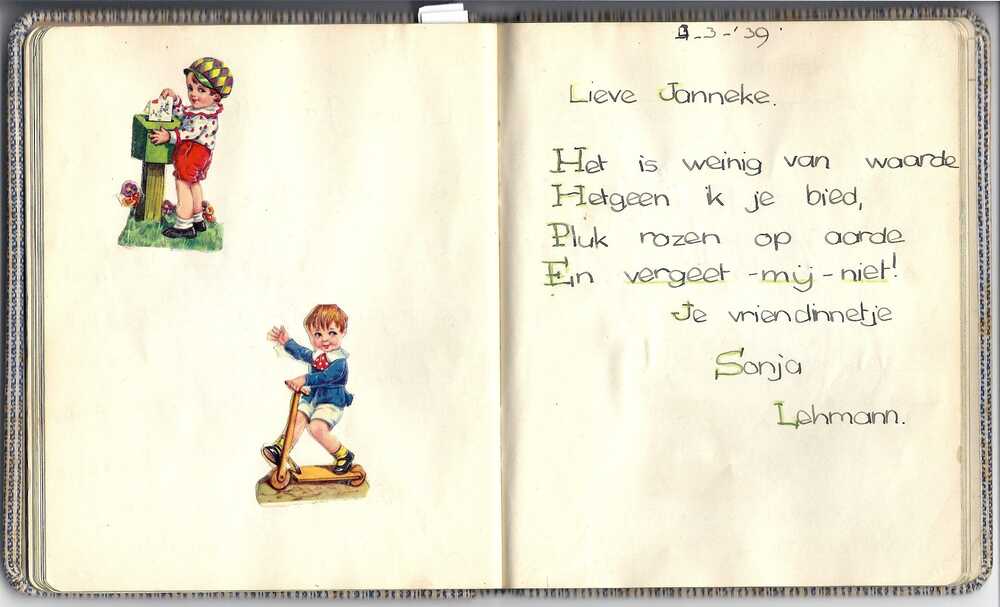 9-3-'39
Lieve Janneke.
Het is weinig van waarde
Hetgeen ik je bied,
Pluk rozen op aarde
En vergeet-mij-niet!
Je vriendinnetje
Sonja
Lehmann.